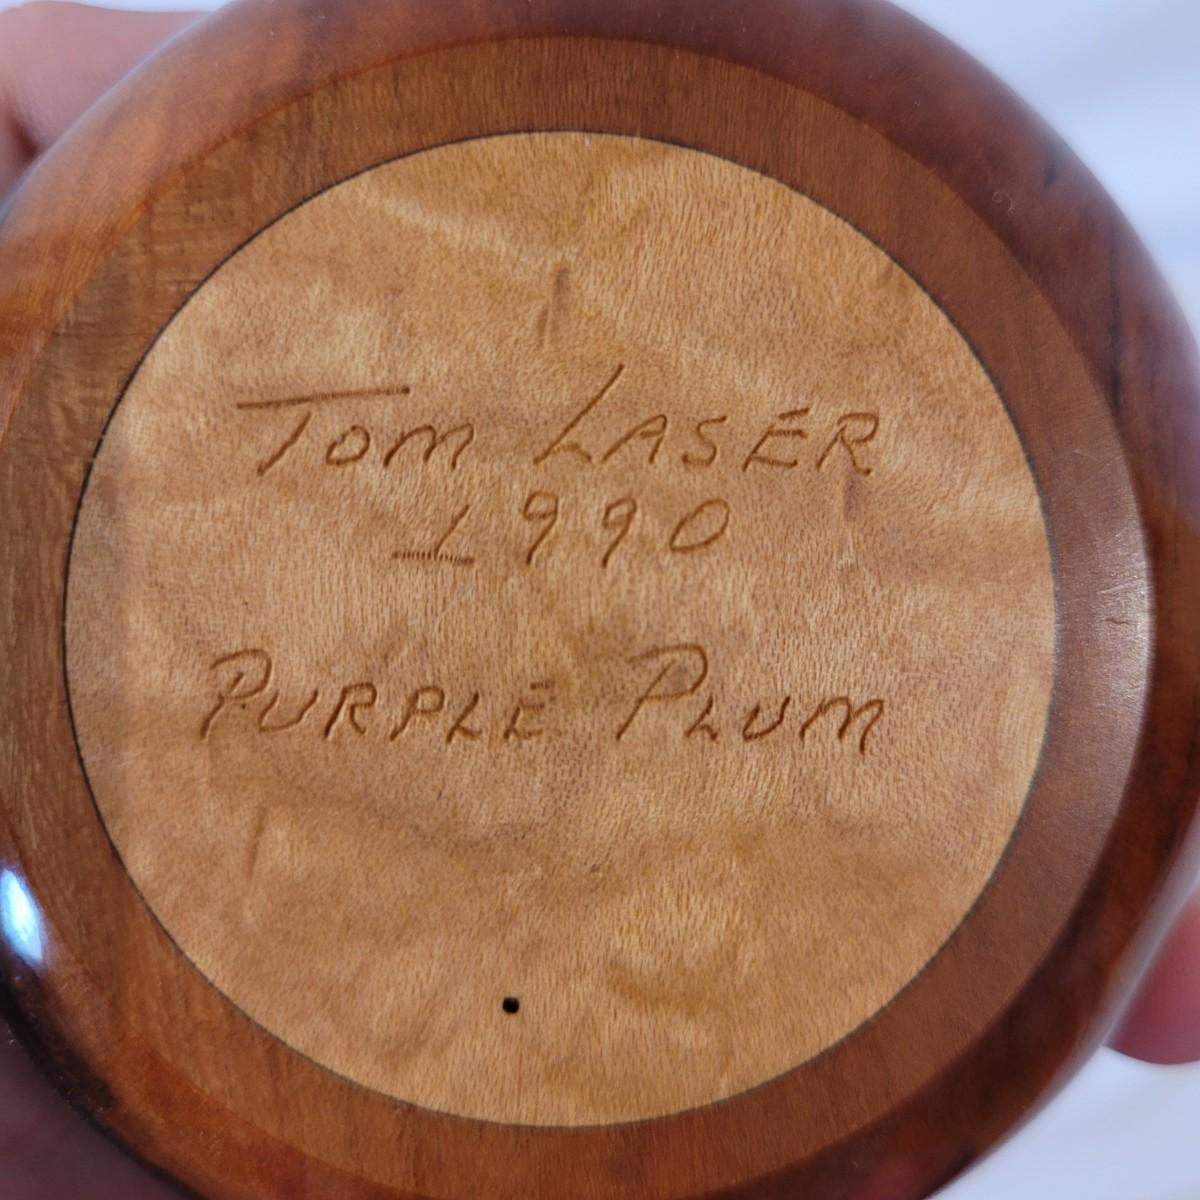 Tom Laser
1990
Purple Plum